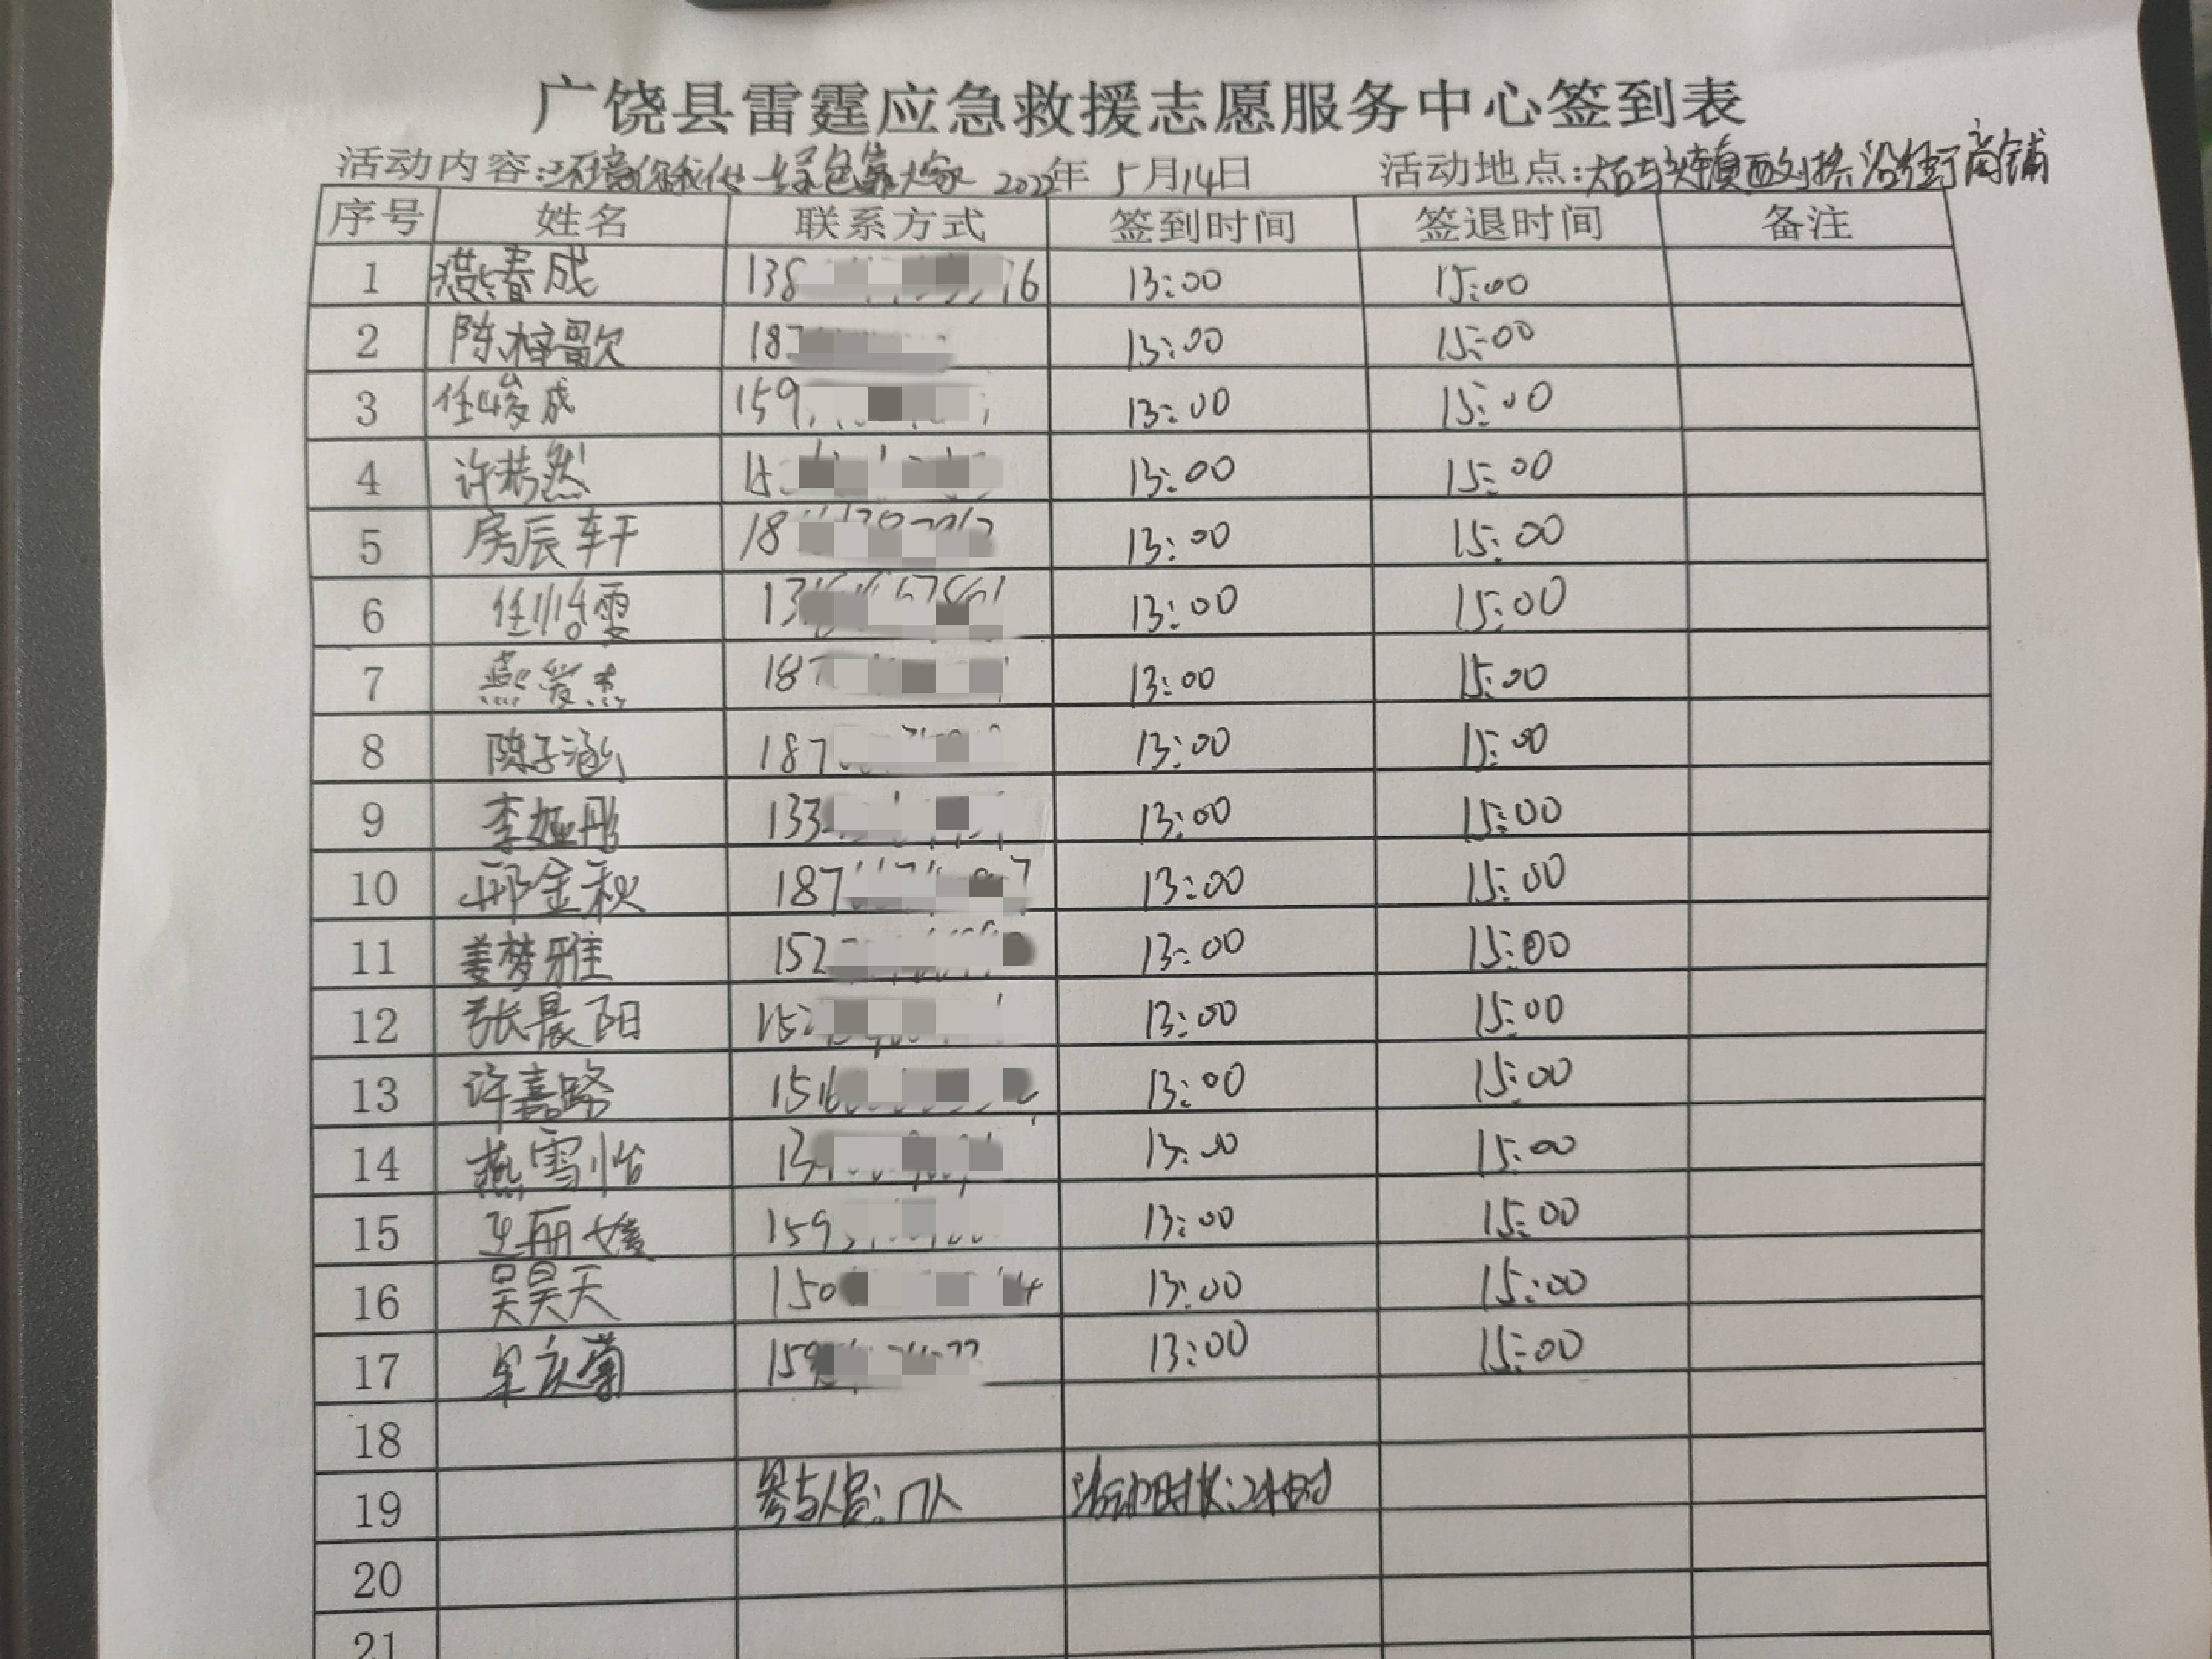 广饶县雷霆应急救援志愿服务中心签到表
活动内容:环境你我他 绿色靠大家 2022年 5月14日 活动地点:大码头镇西刘桥沿街商铺
序号 姓名 联系方式 签到时间 签退时间 备注
1 燕春成 138 76 13:00 15:00
2 陈梓歌 187 13:00 15:00
3 任峻成 159 13:00 15:00
4 许 然 15 13:00 15:00
5 房辰轩 18 13:00 15:00
6 任 雯 13 13:00 15:00
7 燕爱杰 187 13:00 15:00
8 陈子涵 187 13:00 15:00
9 李娅彤 133 13:00 15:00
10 邢金秋 187 7 13:00 15:00
11 姜梦雅 152 13:00 15:00
12 张晨阳 152 13:00 15:00
13 许嘉路 151 13:00 15:00
14 燕雪怡 13 13:00 15:00
15 王丽媛 159 13:00 15:00
16 吴昊天 150 4 13:00 15:00
17 牟庆菊 159 13:00 15:00
18
19 参与人员:17人 活动时长:2小时
20
21